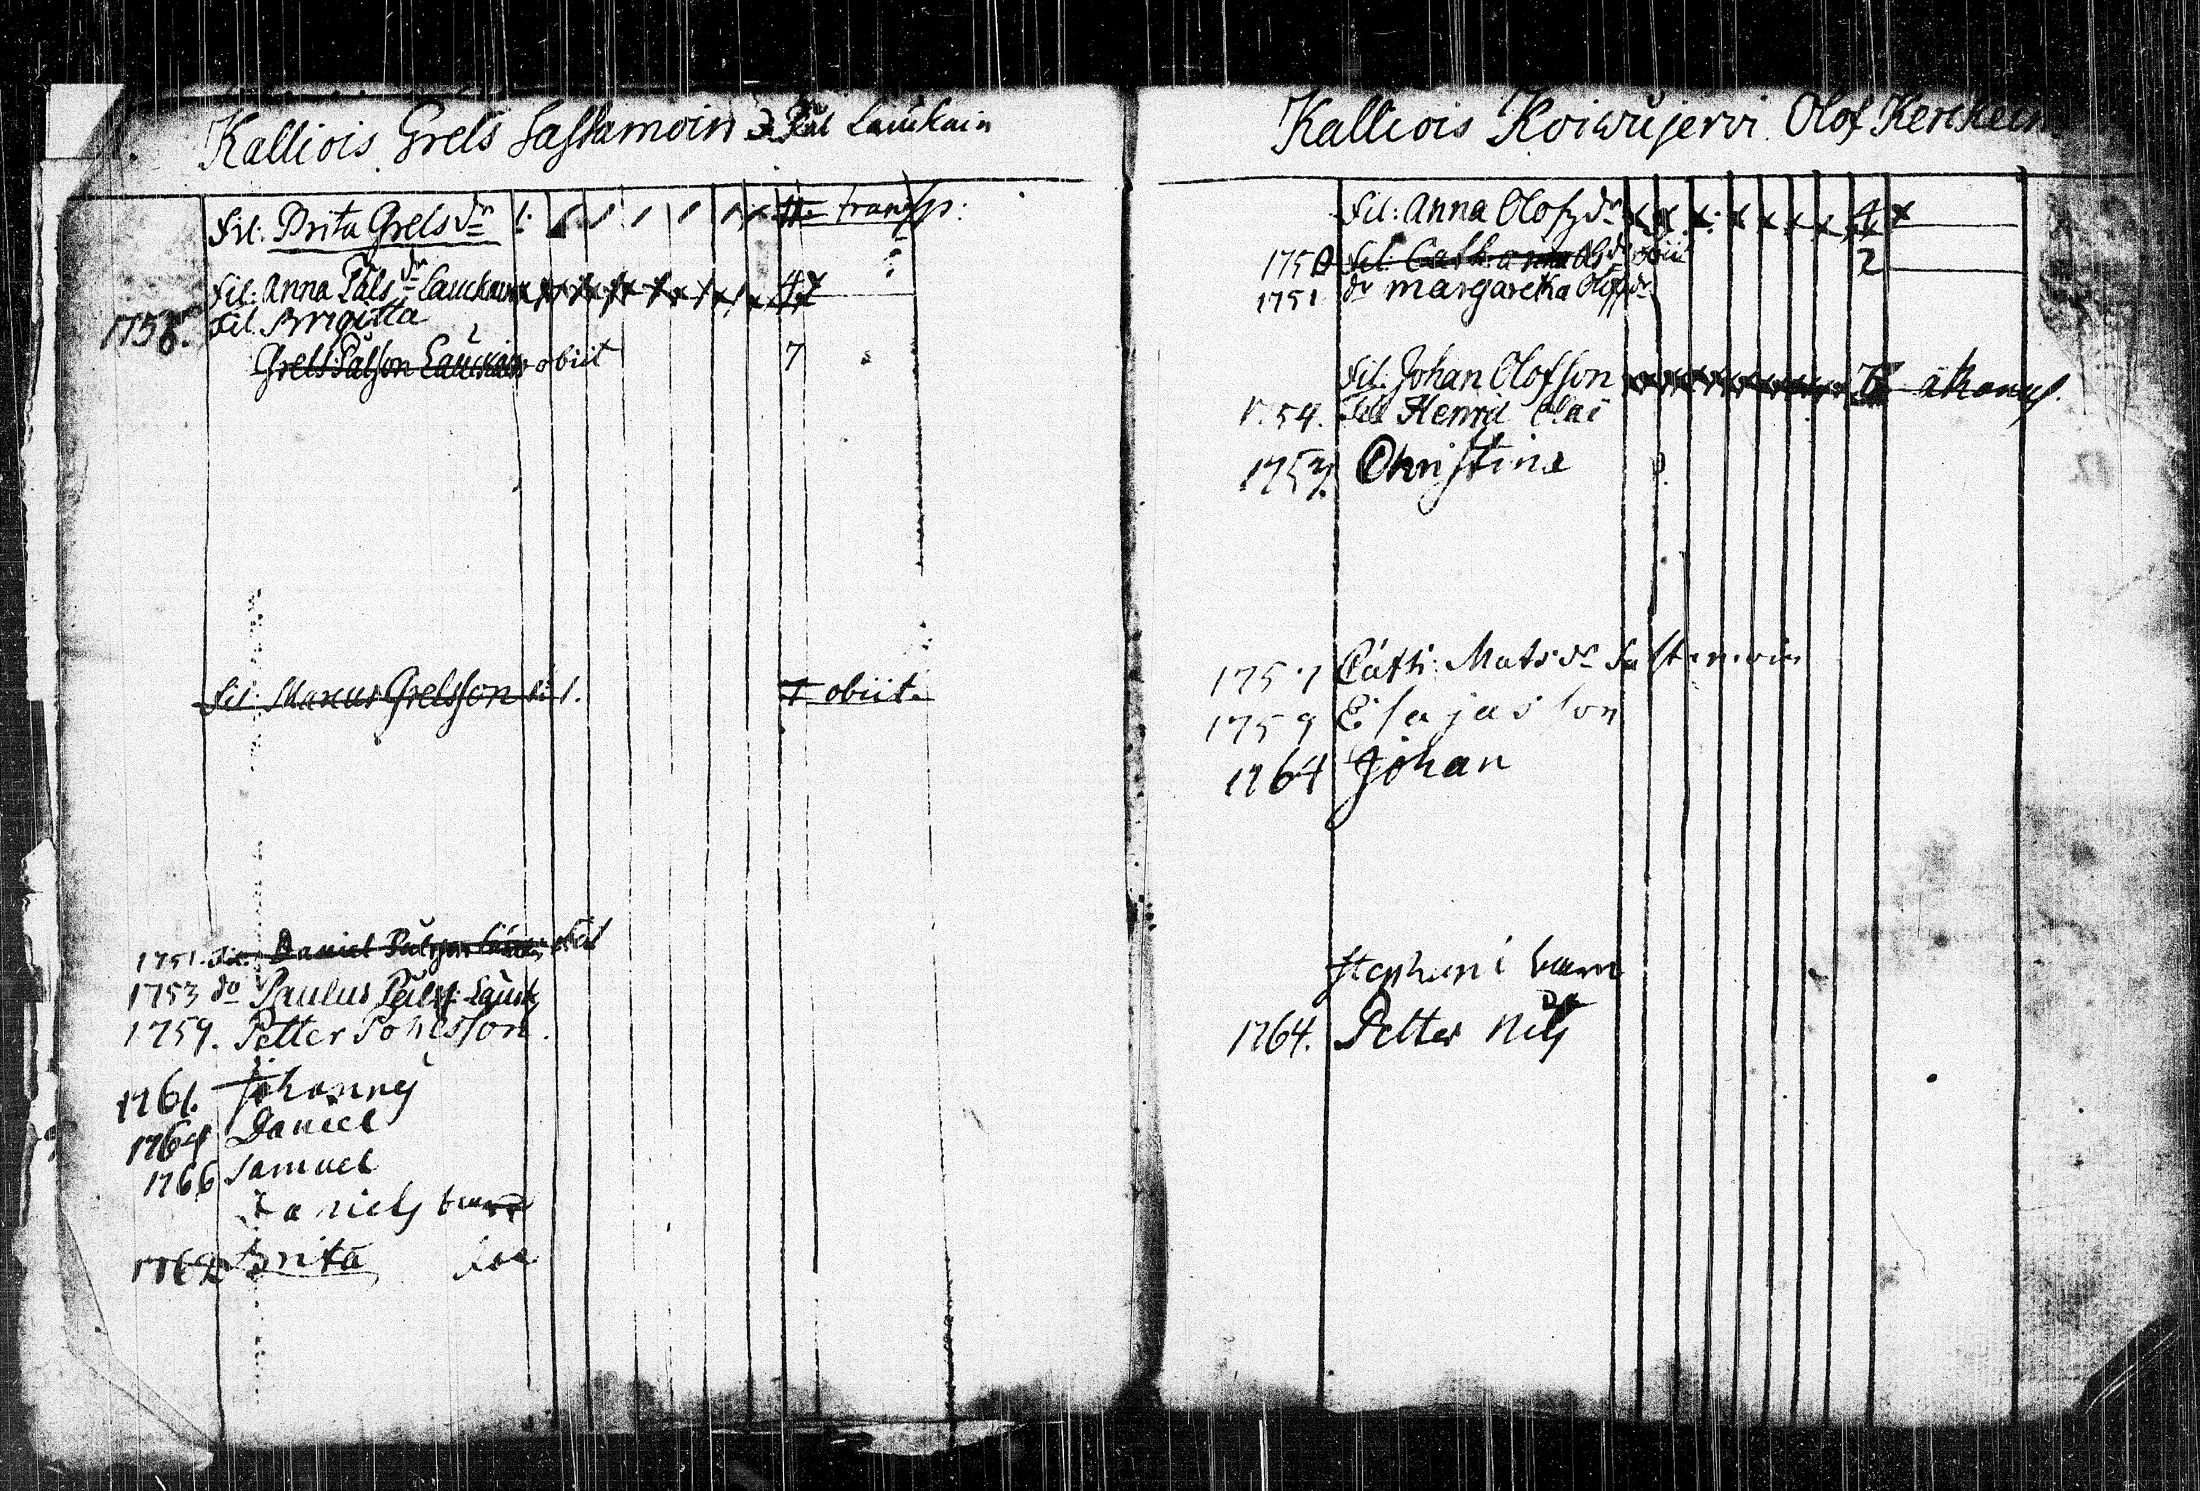 Kalliois Grels Sastamoin Pål Lauckain
Fil: Brita Grels dr transp:
Fil: Anna Påls dr Lauckain 4
1758. Fil. Brigitta
Grels Pålson Lauckain obiit 7
Fil: Marcus Grelsson 7 obiit.
1751. Daniel Pålson obiit
1753 do Paulus Påls: Lauck
1759. Petter Pohlsson.
1761. Johannes
1764 Daniel
1766 Samuel
Daniels barn
Brita
Kalliois Koiwujerwi Olof Kerckein
Fil: Anna Olofz dr 4
1750 Fil: Catharina obiit 2
1751 dr Margareta Olofz dr
Fil: Johan Olofson
1754. Fil Henric Olai
Christina
1757 Cath: Mats dr Sastamoin
1759 Esajas son
1764 Johan
Stephani barn
1764. Petter Nils